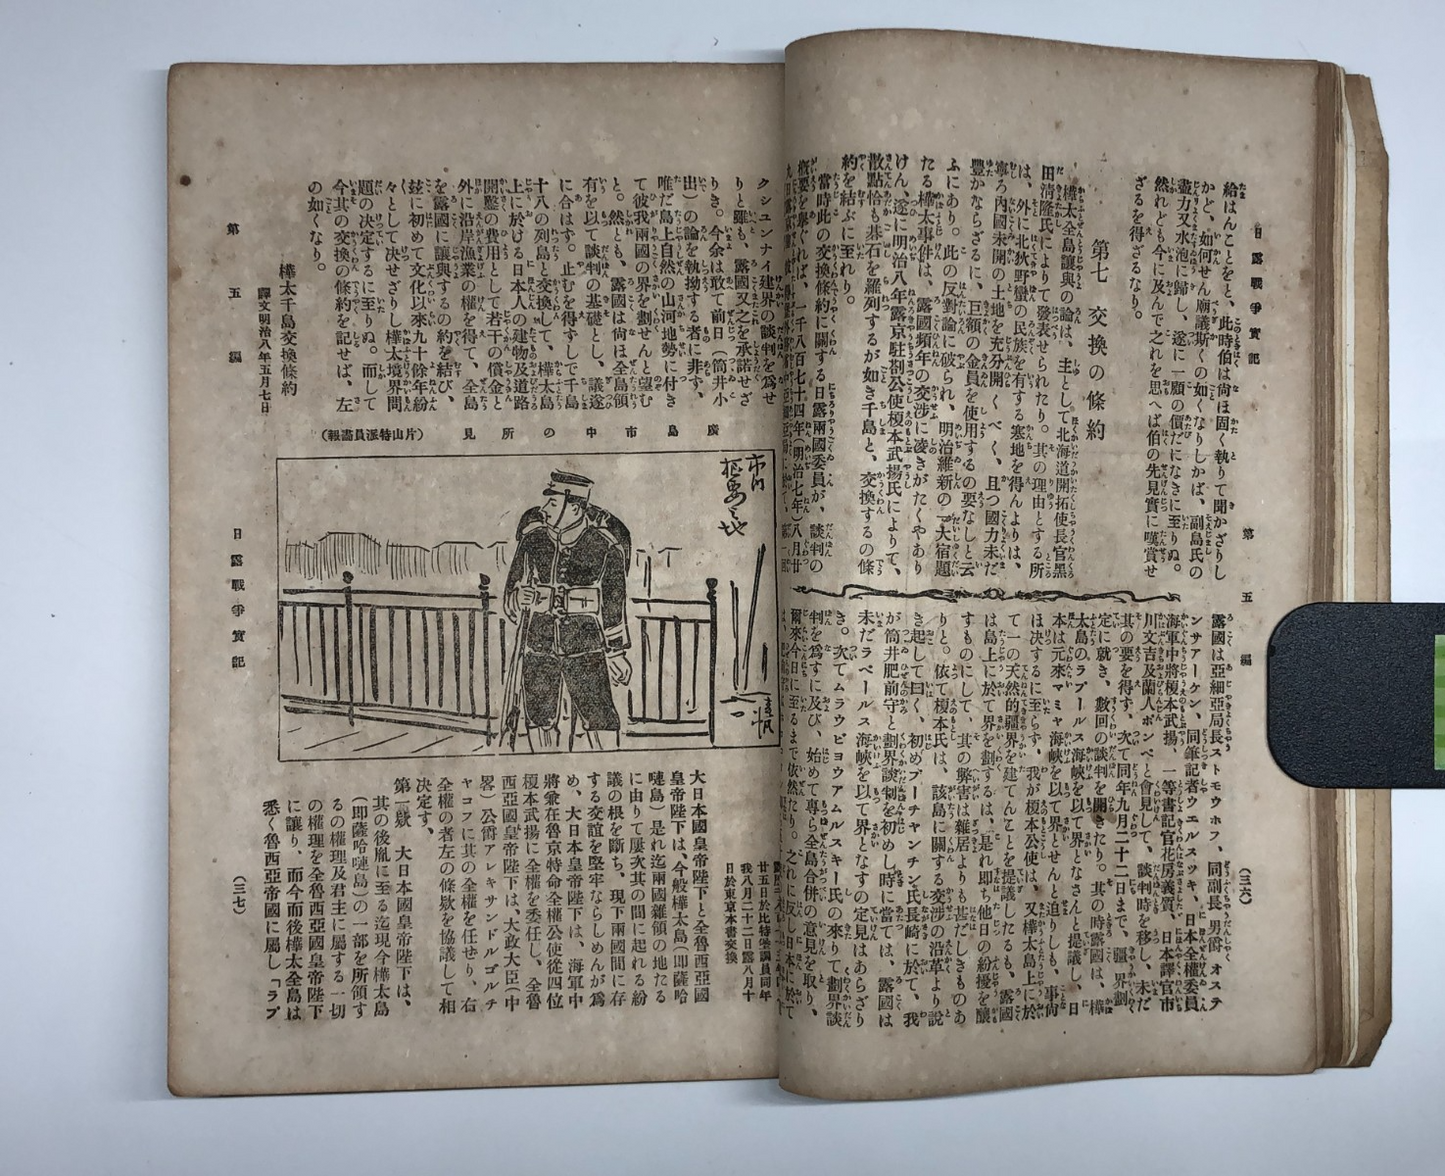 日露戰爭實記
第五編
(三六)
給はんことをと、此時伯は尚ほ固く執りて聞かざりし
かど、如何せん廟議斯くの如くなりしかば、副島氏の
盡力又水泡に歸し、遂に一顧の價だになきに至りぬ。
然れども今に及んで之れを思へば伯の先見實に嘆賞せ
ざるを得ざるなり。
第七 交換の條約
樺太全島讓與の論は、主として北海道開拓使長官黑
田清隆氏によりて發表せられたり。其の理由とする所
は、外に北狄野蠻の民族を有する寒地を得んよりは、
寧ろ內國未開の土地を充分開くべく、且つ國力未だ
豐かならざるに、巨額の金員を使用するの要なしと云
ふにあり。此の反對論に破られ、明治維新の一大宿題
たる樺太事件は、露國頻年の交涉に凌ぎがたくやあり
けん、遂に明治八年露京駐劄公使榎本武揚氏によりて、
散點恰も碁石を羅列するが如き千島と、交換するの條
約を結ぶに至れり。
當時此の交換條約に關する日露兩國委員が、談判の
概要を擧ぐれば、一千八百七十四年(明治七年)八月廿
露國は亞細亞局長ストモウホフ、同副長男爵オステ
ンサアーケン、同筆記者ウエルスツキ、日本全權委員
海軍中將榎本武揚、一等書記官花房義質、日本譯官市
川文吉及蘭人ポンペと會見して、談判時を移し、未だ
其の要を得ず、次て同年九月二十二日まで、疆界劃
定に就き、數回の談判を開きたり。其の時露國は、樺
太島のラプールス海峽を以て界となさんと提議し、日
本は元來マミヤ海峽を以て界とせんと迫りしも、事尚
ほ決するに至らず、我が榎本公使は、又樺太島上に於
て一の天然的疆界を建てんことを提議したるも、露國
は島上に於て界を劃するは、是れ即ち他日の紛擾を釀
すものにして、其の弊害は雜居よりも甚だしきものあ
りと。依て榎本氏は、該島に關する交涉の沿革より說
き起して曰く、初めプーチャンチン氏長崎に於て、我
が筒井肥前守と劃界談判を初めし時に當ては、露國は
未だラペールス海峽を以て界となすの定見はあらざり
き。次てムラウビヨウアムルスキー氏の來りて劃界談
判を爲すに及び、始めて專ら全島合併の意見を取り、
爾來今日に至るまで依然たり。之れに反し日本に於て
クシュンナイ建界の談判を爲せ
りと雖も、露國又之を承諾せざ
りき。今余は敢て前日(筒井小
出)の論を執拗する者に非ず、
唯だ島上自然の山河地勢に付き
て彼我兩國の界を劃せんと望む
と。然とも、露國は尚ほ全島領
有を以て談判の基礎とし、議遂
に合はず。止むを得ずして千島
十八の列島と交換して、樺太島
上に於ける日本人の建物及道路
開鑿の費用として若干の償金と
外に沿岸漁業の權を得て、全島
を露國に讓與するの約を結び、
玆に初めて文化以來九十餘年紛
々として決せざりし樺太境界問
題の決定するに至りぬ。而して
今其の交換の條約を記せば、左
の如くなり。
樺太千島交換條約
譯文明治八年五月七日
廣島市中の所見 (片山特派員畵報)
廿五日於比特堡調員同年
我八月二十二日露八月十
日於東京本書交換
大日本國皇帝陛下と全魯西亞國
皇帝陛下は、今般樺太島(即薩哈
嗹島)是れ迄兩國雜領の地たる
に由りて屢次其の間に起れる紛
議の根を斷ち、現下兩國間に存
する交誼を堅牢ならしめんが爲
め、大日本皇帝陛下は、海軍中
將兼在魯京特命全權公使從四位
榎本武揚に全權を委任し、全魯
西亞國皇帝陛下は、大政大臣(中
畧)公爵アレキサンドルゴルチ
ヤコフに其の全權を任せり、右
全權の者左の條欵を協議して相
決定す。
第一欵 大日本國皇帝陛下は、
其の後胤に至る迄現今樺太島
(即薩哈嗹島)の一部を所領す
るの權理及君主に屬する一切
の權理を全魯西亞國皇帝陛下
に讓り、而今而後樺太全島は
悉く魯西亞帝國に屬し「ラプ
第五編
日露戰爭實記
(三七)